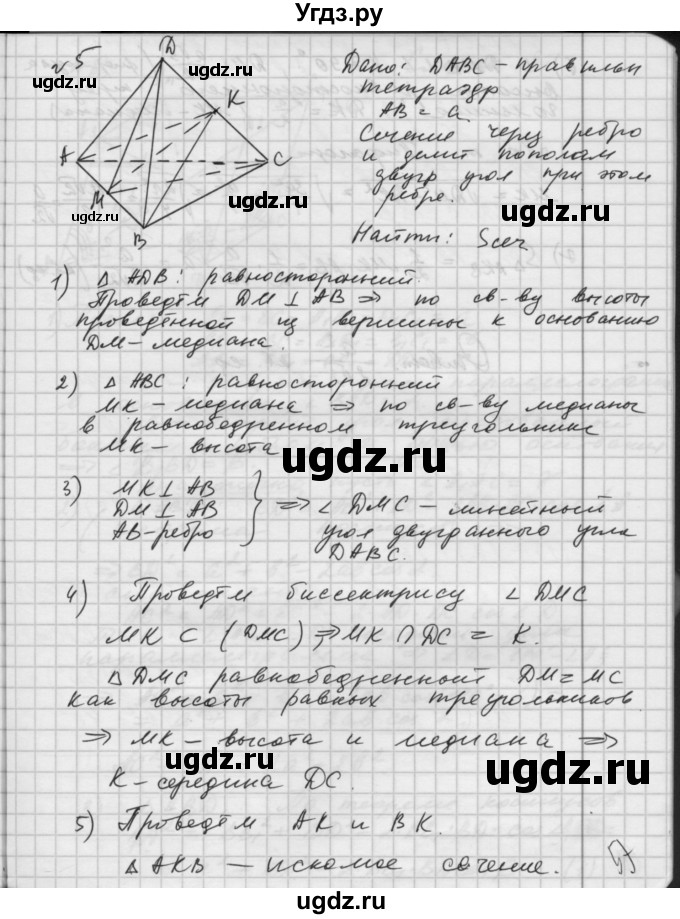 Угдз.ру
№5
D
ugdz.ru
K
A
C
M
ugdz.ru
B
Дано: DABC – правильн
тетраэдр
AB = a
Сечение через ребро
и делит пополам
двугр угол при этом
ребре.
Найти: Sсеч
1) △ ADB: равносторонний.
Проведём DM ⊥ AB ⇒ по св-ву высоты
проведённой из вершины к основанию
DM – медиана.
ugdz.ru
2) △ ABC: равносторонний
MK – медиана ⇒ по св-ву медианы
в равнобедренном треугольнике
MK – высота
ugdz.ru
3) MK ⊥ AB
DM ⊥ AB
AB – ребро
} ⇒ ∠ DMC – линейный
угол двугранного угла
DABC.
ugdz.ru
4) Проведём биссектрису ∠ DMC
MK ⊂ (DMC); MK ∩ DC = K.
△ DMC равнобедренный DM = MC
как высоты равных треугольников
ugdz.ru
⇒ MK – высота и медиана ⇒
K – середина DC.
ugdz.ru
ugdz.ru
5) Проведём AK и BK.
△ AKB – искомое сечение.
ugdz.ru